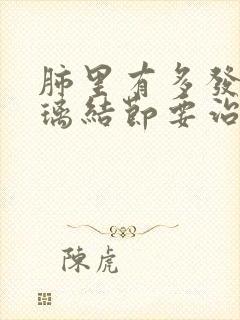 肺里有多發
璃結節要治
陳虎